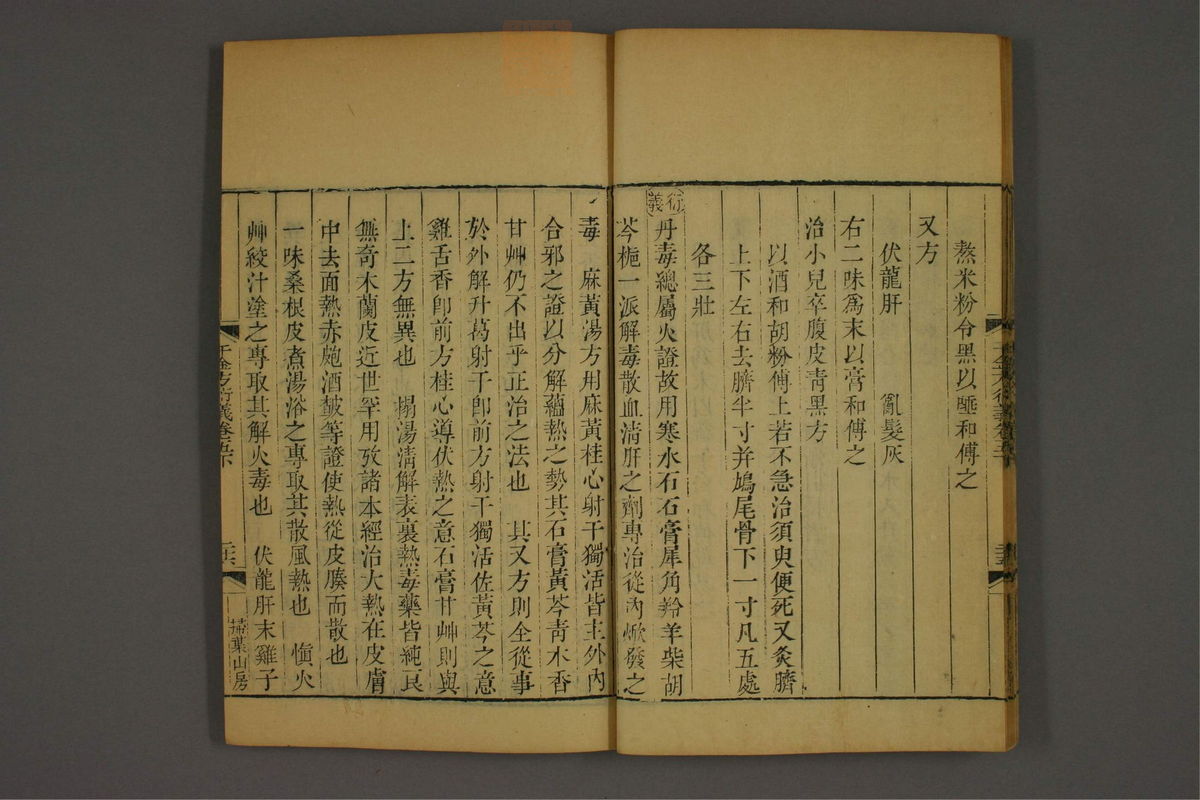 熬米粉令黑以唾和傅之
又方
伏龍肝　亂髮灰
右二味爲末以膏和傅之
治小兒卒腹皮青黑方
以酒和胡粉傅上若不急治須臾便死又灸臍
上下左右去臍半寸并鳩尾骨下一寸凡五處
各三壯
衍義
丹毒總屬火證故用寒水石石膏犀角羚羊柴胡
芩梔一派解毒散血清肝之劑專治從內焮發之
毒　麻黃湯方用麻黃桂心射干獨活皆主外內
合邪之證以分解蘊熱之勢其石膏黃芩青木香
甘艸仍不出乎正治之法也　其又方則全從事
於外解升葛射干卽前方射干獨活佐黃芩之意
雞舌香卽前方桂心導伏熱之意石膏甘艸則與
上二方無異也　搨湯淸解表裏熱毒藥皆純良
無奇木蘭皮近世罕用攷諸本經治大熱在皮膚
中去面熱赤皰酒皶等證使熱從皮腠而散也
一味桑根皮煮湯浴之專取其散風熱也　慎火
艸絞汁塗之專取其解火毒也　伏龍肝末雞子
千金方衍義卷五下
二六
掃葉山房